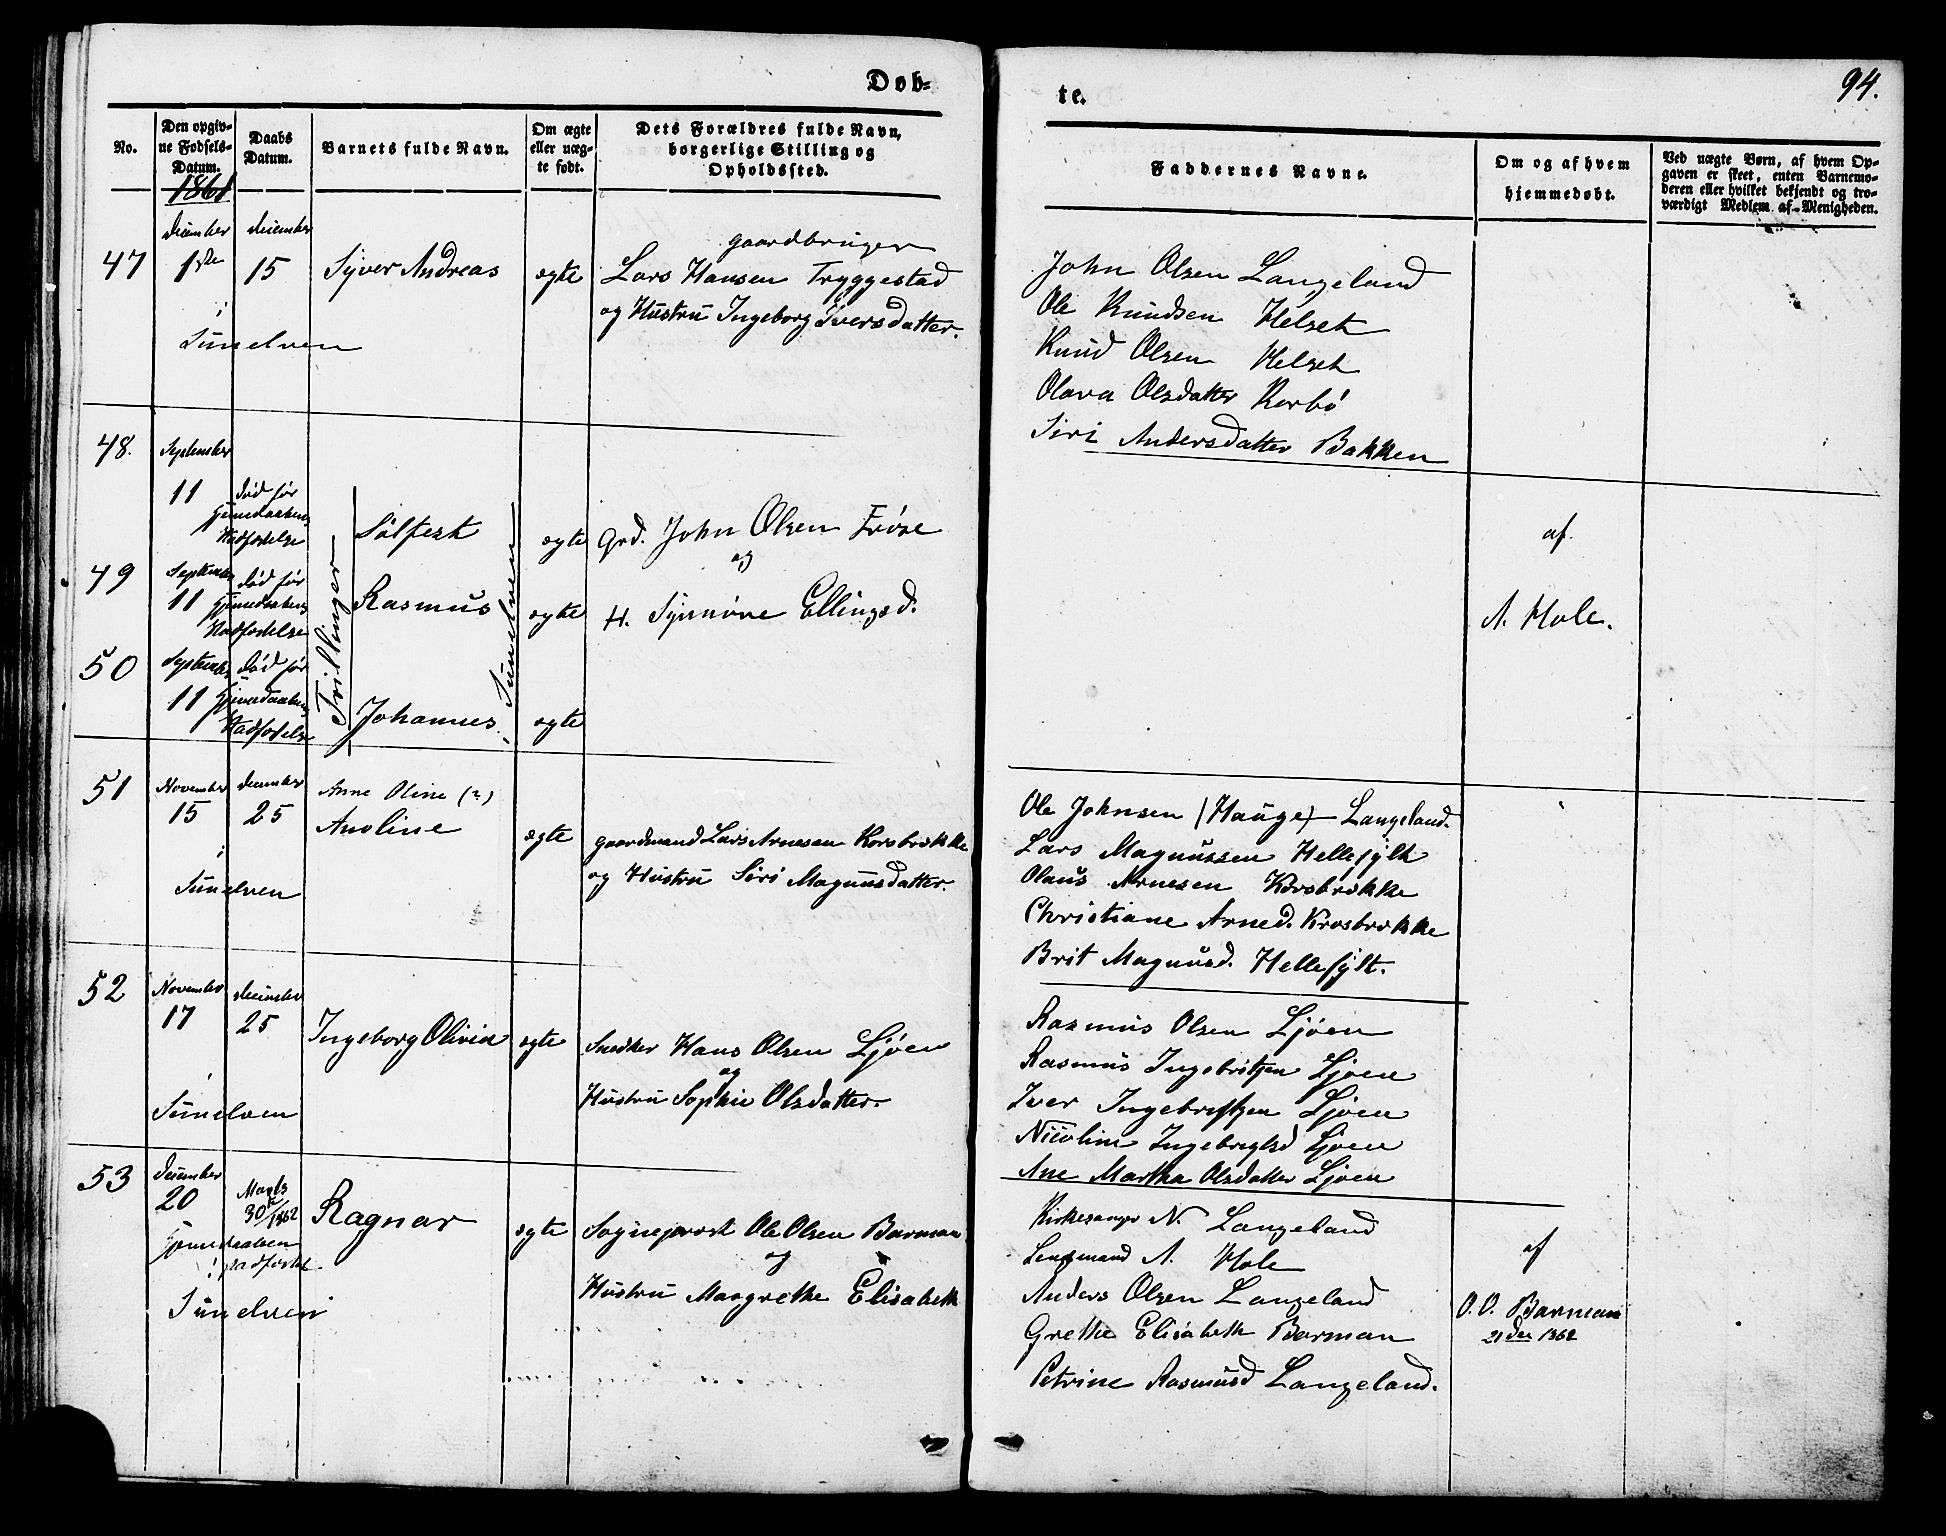 Døb-
te.
94.
No.
Den opgiv-
ne Fødsels-
Datum.
Daabs
Datum.
Barnets fulde Navn.
Om ægte
eller uæg-
te født.
Dets Forældres fulde Navn,
borgerlige Stilling og
Opholdssted.
Faddernes Navne.
Om og af hvem
hjemmedøbt.
Ved uægte Børn, af hvem Op-
gaven er skeet, enten Barnemo-
deren eller hvilket bekjendt og tro-
værdigt Medlem af Menigheden.
1861
47
December
1ste
i
Sunelven
December
15
Syver Andreas
ægte
gaardbruger
Lars Hansen Tryggestad
og Hustru Ingeborg Iversdatter.
John Olsen Langeland
Ole Knudsen Helset
Knud Olsen Helset
Olava Olsdatter Korbø
Siri Andersdatter Bakken
48.
September
11
død før
Hjemedaabens
Stadfæstelse
Trillinger
Sunelven
Sølfest
ægte
Grd. John Olsen Frøse
og
H. Synnøve Ellingsd.
af
A. Hole.
49
September
11
død før
Hjemedaabens
Stadfæstelse
Rasmus
ægte
50
September
11
død før
Hjemedaabens
Stadfæstelse
Johannes
ægte
51
November
15
i
Sunelven
December
25
Anne Oline (?)
Anoline
ægte
gaardmand Lars Arnesen Korsbrekke
og Hustru Siri Magnusdatter.
Ole Johnsen (Hauge) Langeland.
Lars Magnussen Hellesylt
Olaus Arnesen Korsbrekke
Christiane Arned. Krosbrekke
Brit Magnusd. Hellesylt.
52
November
17
i
Sunelven
December
25
Ingeborg Olivia
ægte
Snedker Hans Olsen Ljøen
og
Hustru Sophie Olsdatter.
Rasmus Olsen Ljøen
Rasmus Ingebritsen Ljøen
Iver Ingebritsen Ljøen
Nicoline Ingebrigtsd Ljøen
Ane Martha Olsdatter Ljøen
53
December
20
Hjemedaaben
stadfæstet
i
Sunelven
Marts
30te/1862
Ragnar
ægte
Sogneprest Ole Olsen Barman
og
Hustru Margrethe Elisabeth
Kirkesanger N. Langeland
Lensmand A. Hole
Anders Olsen Langeland
Grethe Elisabeth Barman
Petrine Rasmusd Langeland.
af
O. O. Barman
21 Dec 1862